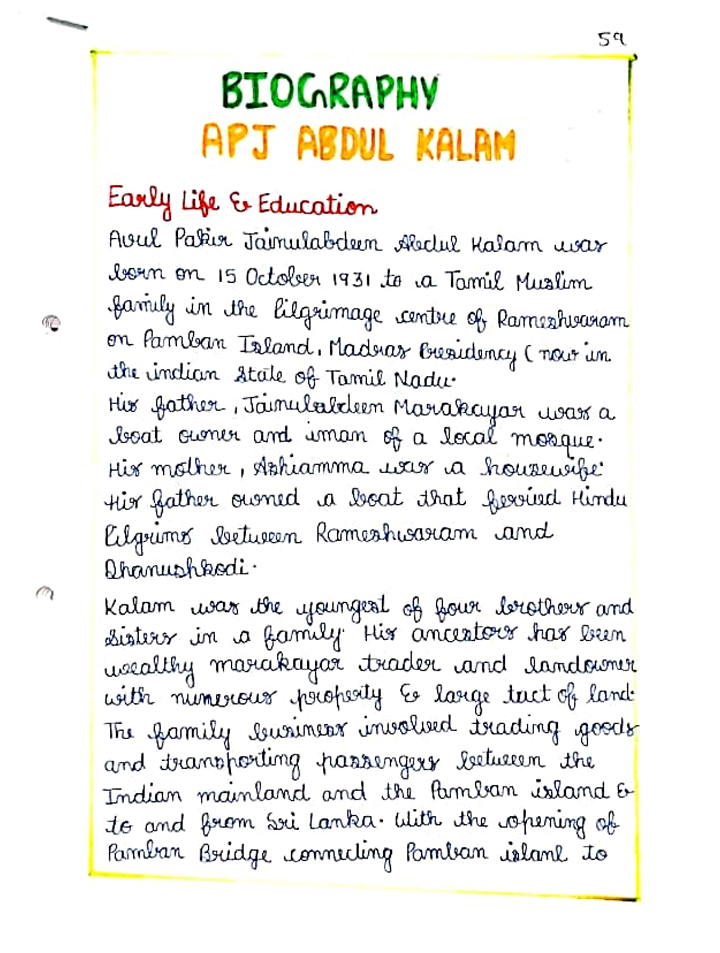 59
BIOGRAPHY
APJ ABDUL KALAM
Early Life & Education
Avul Pakir Jainulabdeen Abdul Kalam was
born on 15 October 1931 to a Tamil Muslim
family in the Pilgrimage centre of Rameshwaram
on Pamban Island, Madras Presidency ( now in
the indian State of Tamil Nadu.
His father, Jainulabdeen Marakayar was a
boat owner and iman of a local mosque.
His mother, Ashiamma was a housewife.
His father owned a boat that ferried Hindu
Pilgrims between Rameshwaram and
Dhanushkodi.
Kalam was the youngest of four brothers and
Sisters in a family. His ancestors has been
wealthy marakayar trader and landowner
with numerous property & large tact of land.
The family business involved trading goods
and transporting passengers between the
Indian mainland and the Pamban island &
to and from Sri Lanka. With the opening of
Pamban Bridge connecting Pamban islanl to